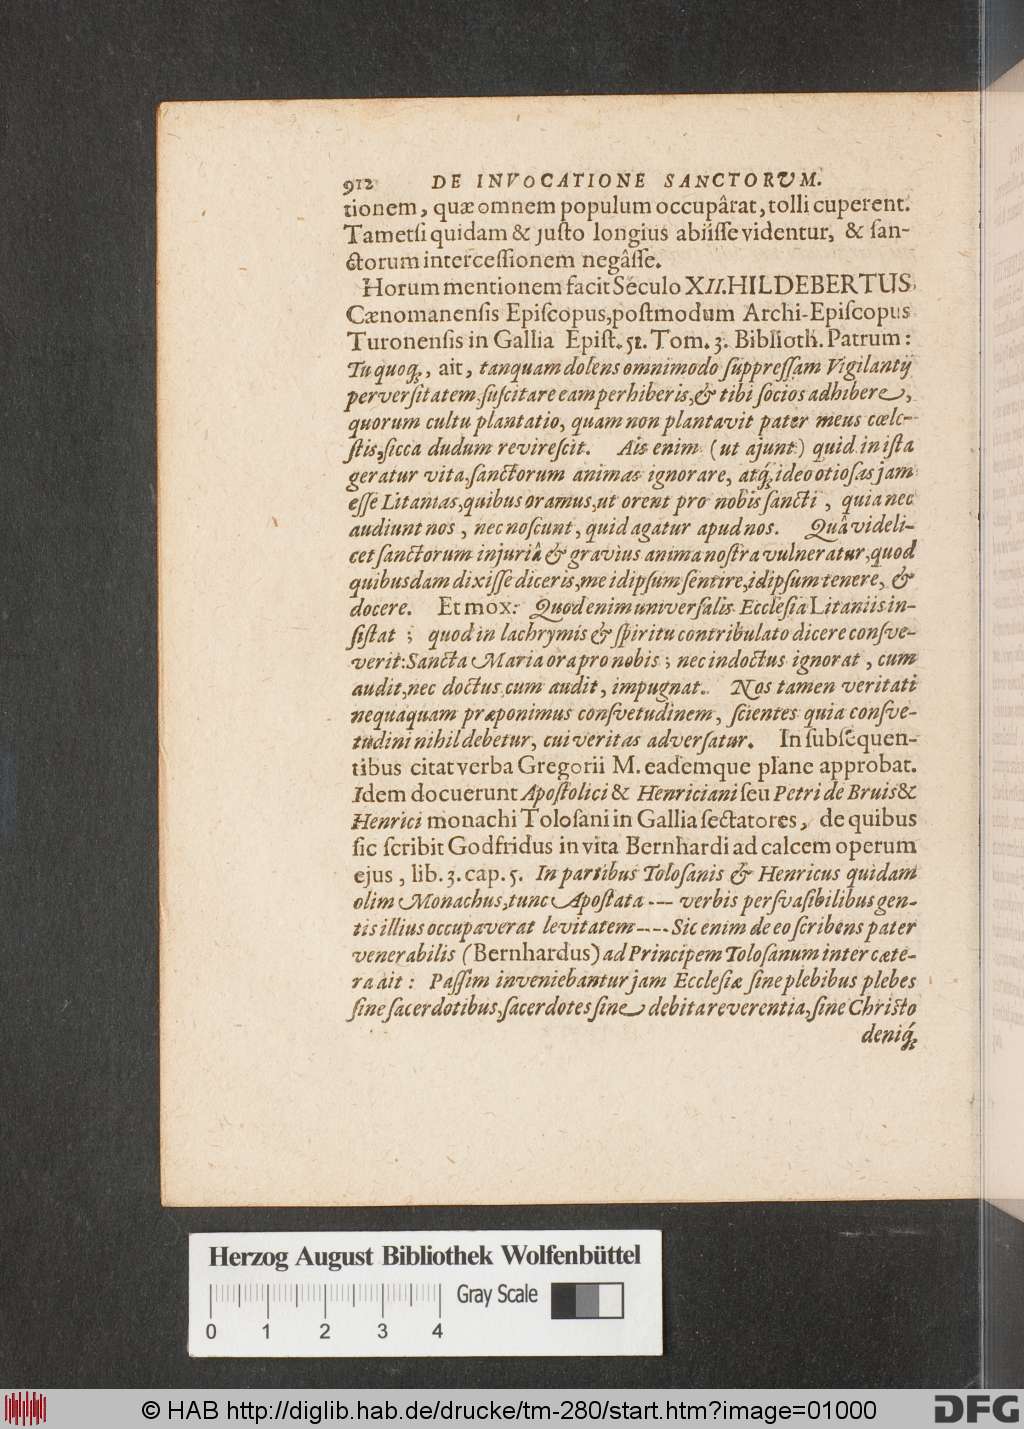 912 DE INVOCATIONE SANCTORVM.
tionem, quæ omnem populum occupârat, tolli cuperent.
Tametſi quidam & juſto longius abiiſſe videntur, & ſan-
ctorum interceſſionem negâſſe.
Horum mentionem facit Século XII. HILDEBERTUS,
Cænomanenſis Epiſcopus, poſtmodum Archi-Epiſcopus
Turonenſis in Gallia Epiſt. 51. Tom. 3. Biblioth. Patrum:
Tu quoq;, ait, tanquam dolens omnimodo ſuppreſſam Vigilantij
perverſitatem, ſuſcitare eam perhiberis, & tibi ſocios adhibere,
quorum cultu plantatio, quam non plantavit pater meus cœle-
ſtis, ſicca dudum revireſcit. Ais enim (ut ajunt) quid in iſta
geratur vita, ſanctorum animas ignorare, atq́; ideo otioſas jam
eſſe Litanias, quibus oramus, ut orent pro nobis ſancti, quia nec
audiunt nos, nec noſcunt, quid agatur apud nos. Quâ videli-
cet ſanctorum injuriâ & gravius anima noſtra vulneratur, quod
quibusdam dixiſſe diceris, me idipſum ſentire, idipſum tenere, &
docere. Et mox: Quod enim univerſalis Eccleſia Litaniis in-
ſiſtat; quod in lachrymis & ſpiritu contribulato dicere conſve-
verit: Sancta Maria ora pro nobis; nec indoctus ignorat, cum
audit, nec doctus cum audit, impugnat. Nos tamen veritati
nequaquam præponimus conſvetudinem, ſcientes quia conſve-
tudini nihil debetur, cui veritas adverſatur. In ſubſequen-
tibus citat verba Gregorii M. eademque plane approbat.
Idem docuerunt Apoſtolici & Henriciani ſeu Petri de Bruis &
Henrici monachi Toloſani in Gallia ſectatores, de quibus
ſic ſcribit Godfridus in vita Bernhardi ad calcem operum
ejus, lib. 3. cap. 5. In partibus Toloſanis & Henricus quidam
olim Monachus, tunc Apoſtata --- verbis perſvaſibilibus gen-
tis illius occupaverat levitatem ---- Sic enim de eo ſcribens pater
venerabilis (Bernhardus) ad Principem Toloſanum inter cæte-
ra ait: Paſſim inveniebantur jam Eccleſiæ ſine plebibus plebes
ſine ſacerdotibus, ſacerdotes ſine debita reverentia, ſine Chriſto
deniq́;
Herzog August Bibliothek Wolfenbüttel
Gray Scale
0 1 2 3 4
© HAB http://diglib.hab.de/drucke/tm-280/start.htm?image=01000
DFG